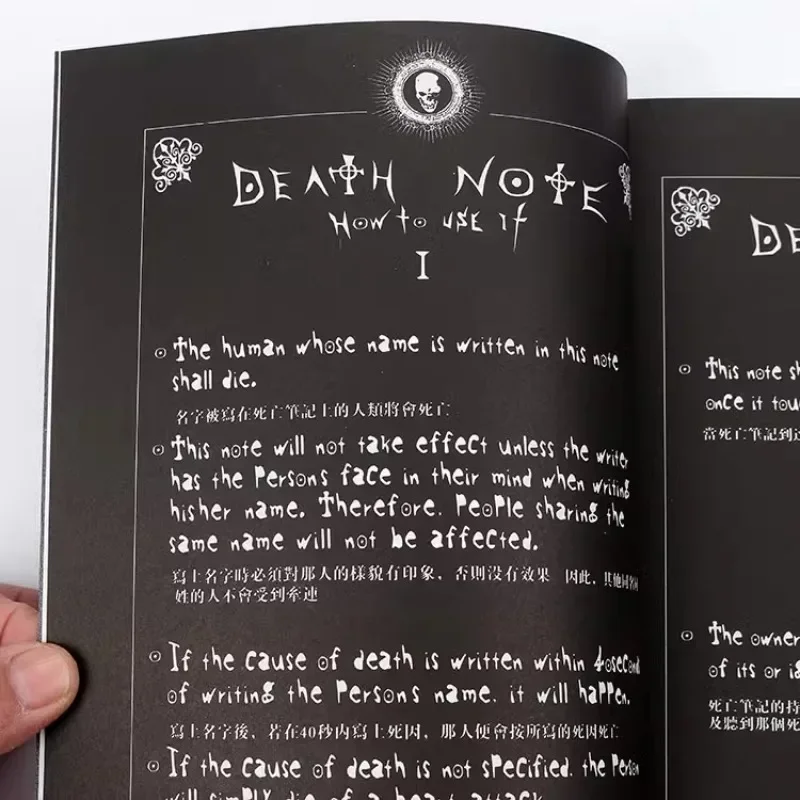 DEATH NOTE
How to use it
I
The human whose name is written in this note
shall die.
名字被寫在死亡筆記上的人類將會死亡
This note will not take effect unless the writer
has the Persons face in their mind when writing
hisher name. Therefore. People sharing the
same name will not be affected.
寫上名字時必須對那人的樣貌有印象，否則沒有效果 因此，其他同名同
姓的人不會受到牽連
If the cause of death is written within 40second
of writing the Persons name. it will happen.
寫上名字後，若在40秒内寫上死因，那人便會按所寫的死因死亡
If the cause of death is not specified. the Person
will simply die of a heart attack
DE
This note sh
once it tou
當死亡筆記到
The owner
of its or
死亡筆記的持
及聽到那個死